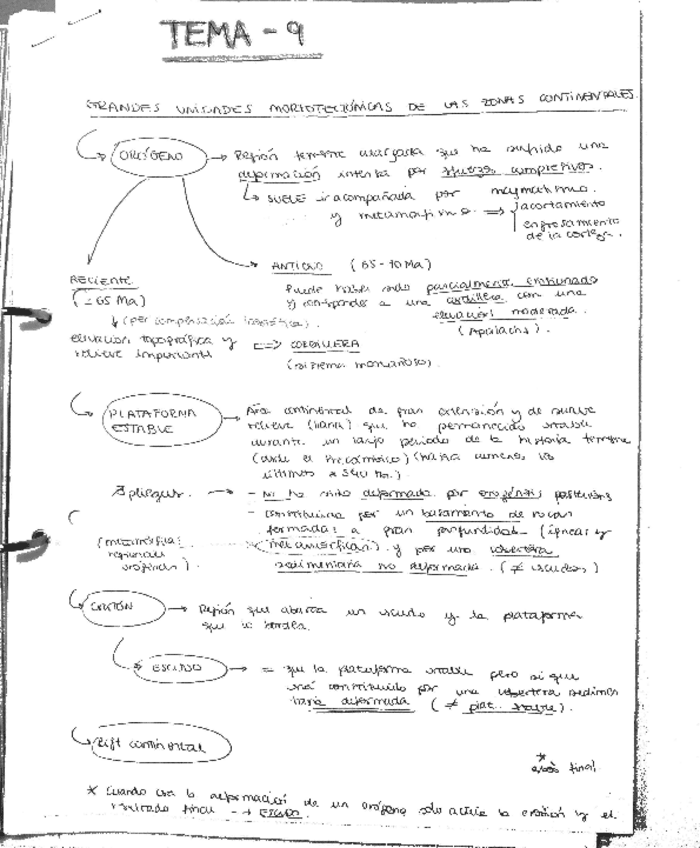 TEMA - 9
GRANDES UNIDADES MORFOTECTÓNICAS DE LAS ZONAS CONTINENTALES.
ORÓGENO → Región terrestre alargada que ha sufrido una
deformación intensa por esfuerzos compresivos.
↳ SUELE ir acompañada por magmatismo
y metamorfismo ⇒ acortamiento
engrosamiento
de la corteza.
ANTIGUO (65-70 Ma)
Puede haber sido parcialmente erosionado
y corresponder a una cordillera con una
elevación moderada.
(Apalachs).
RECIENTE
(-65 Ma)
↓ (por compensación isostática).
elevación topográfica y ⇐⇒ CORDILLERA
relieve importante (sistema montañoso).
PLATAFORMA
ESTABLE → Área continental de gran extensión y de suave
relieve (llana) que ha permanecido estable
durante un largo periodo de la historia terrestre
(desde el Precámbrico) (hasta los
últimos 540 Ma.)
→ - No ha sido deformada por orogénesis posteriores
- constituida por un basamento de rocas
formadas a gran profundidad (ígneas y
metamórficas) y por una cobertera
sedimentaria no deformada. (≠ escudos)
(metamórficas:
regionales
orogénicas).
CRATÓN → Región que abarca un escudo y la plataforma
que lo bordea.
ESCUDO → = que la plataforma estable pero sí que
está constituido por una cobertera sedimen
taria deformada (≠ plat. estable).
Rift continental
*
final
* Cuando cesa la deformación de un orógeno solo actúa la erosión y el
resultado final → ESCUDO.